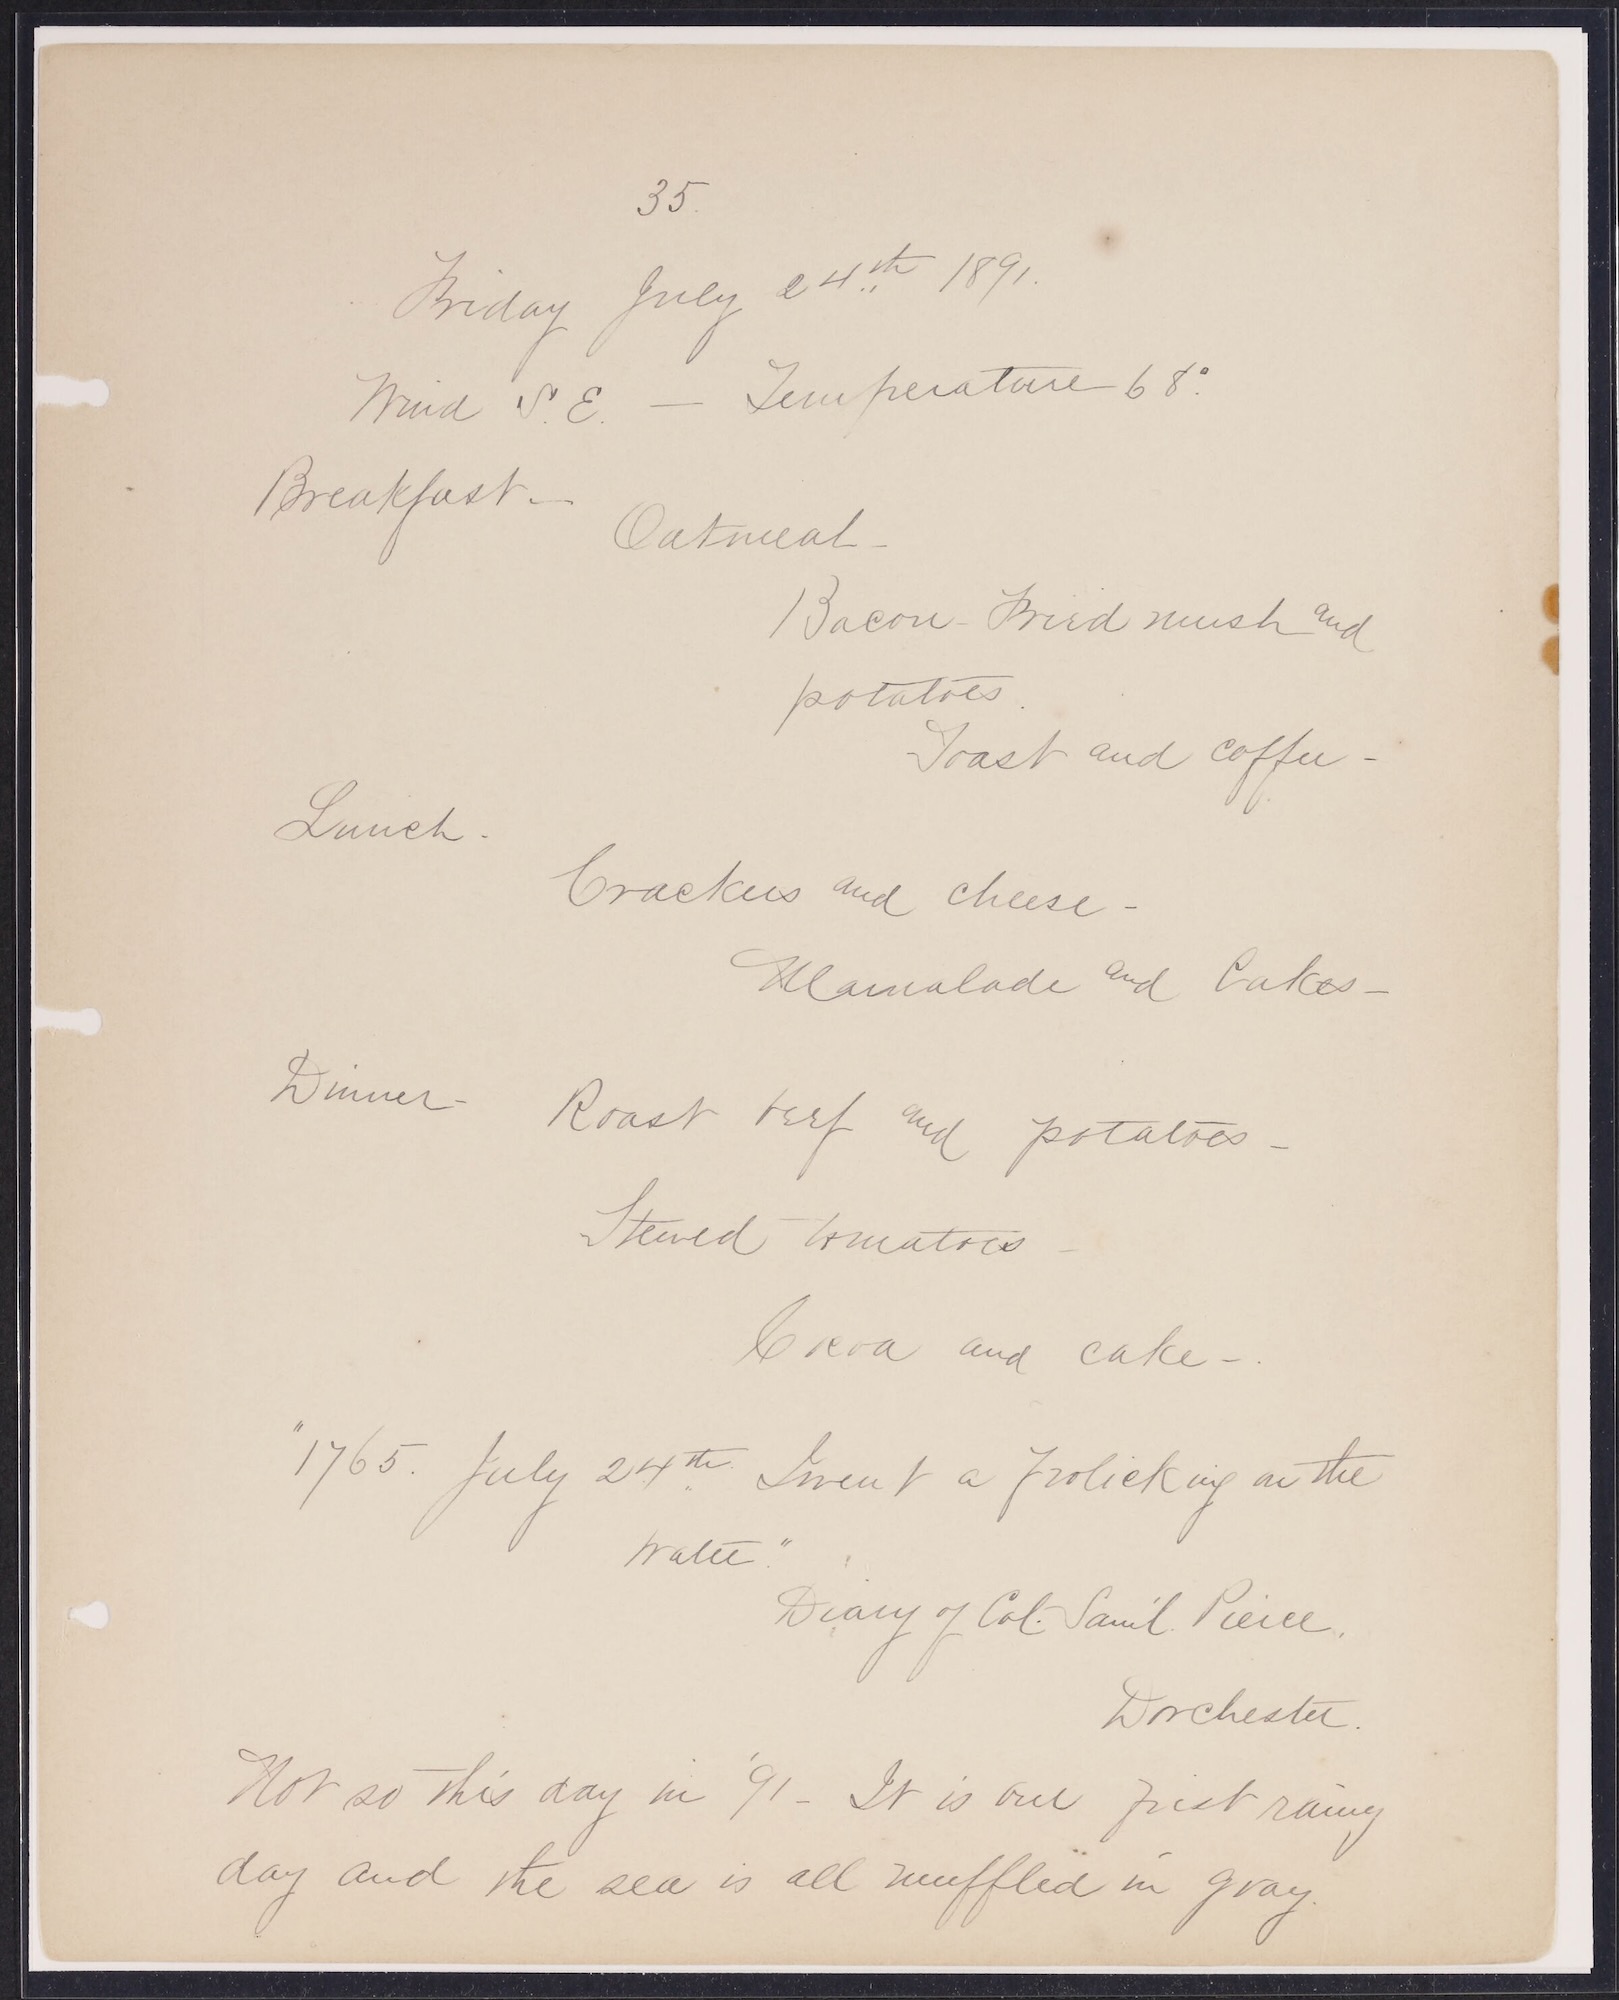 35.
Friday July 24th 1891.
Wind S.E. — Temperature 68°
Breakfast —
Oatmeal -
Bacon - Fried mush and
potatoes.
Toast and coffee -
Lunch -
Crackers and cheese -
Mamalade and Cakes -
Dinner - Roast beef and potatoes -
Stewed tomatoes -
Cocoa and cake -.
"1765. July 24th. I went a frolicking on the
water."
Diary of Col. Sam'l. Pierce.
Dorchester.
Not so this day in '91 - It is our first rainy
day and the sea is all muffled in gray.